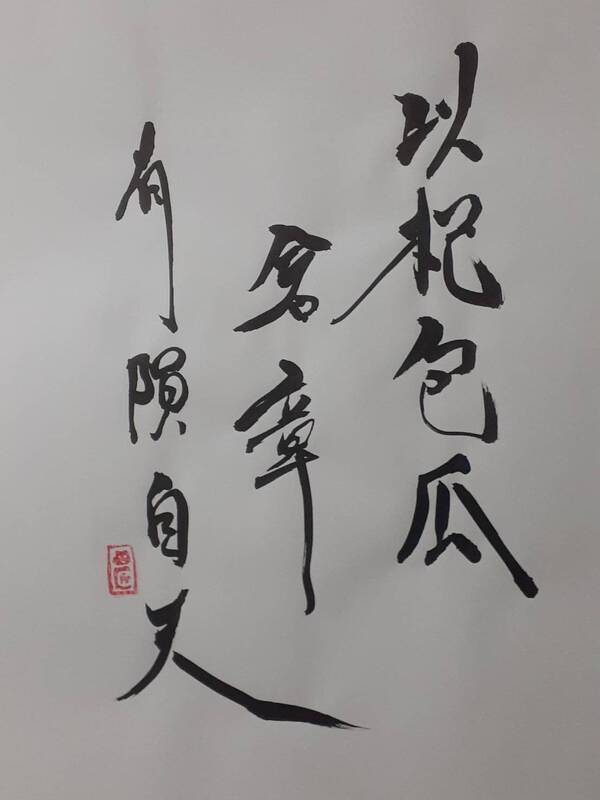 以杞包瓜
含章
有隕自天